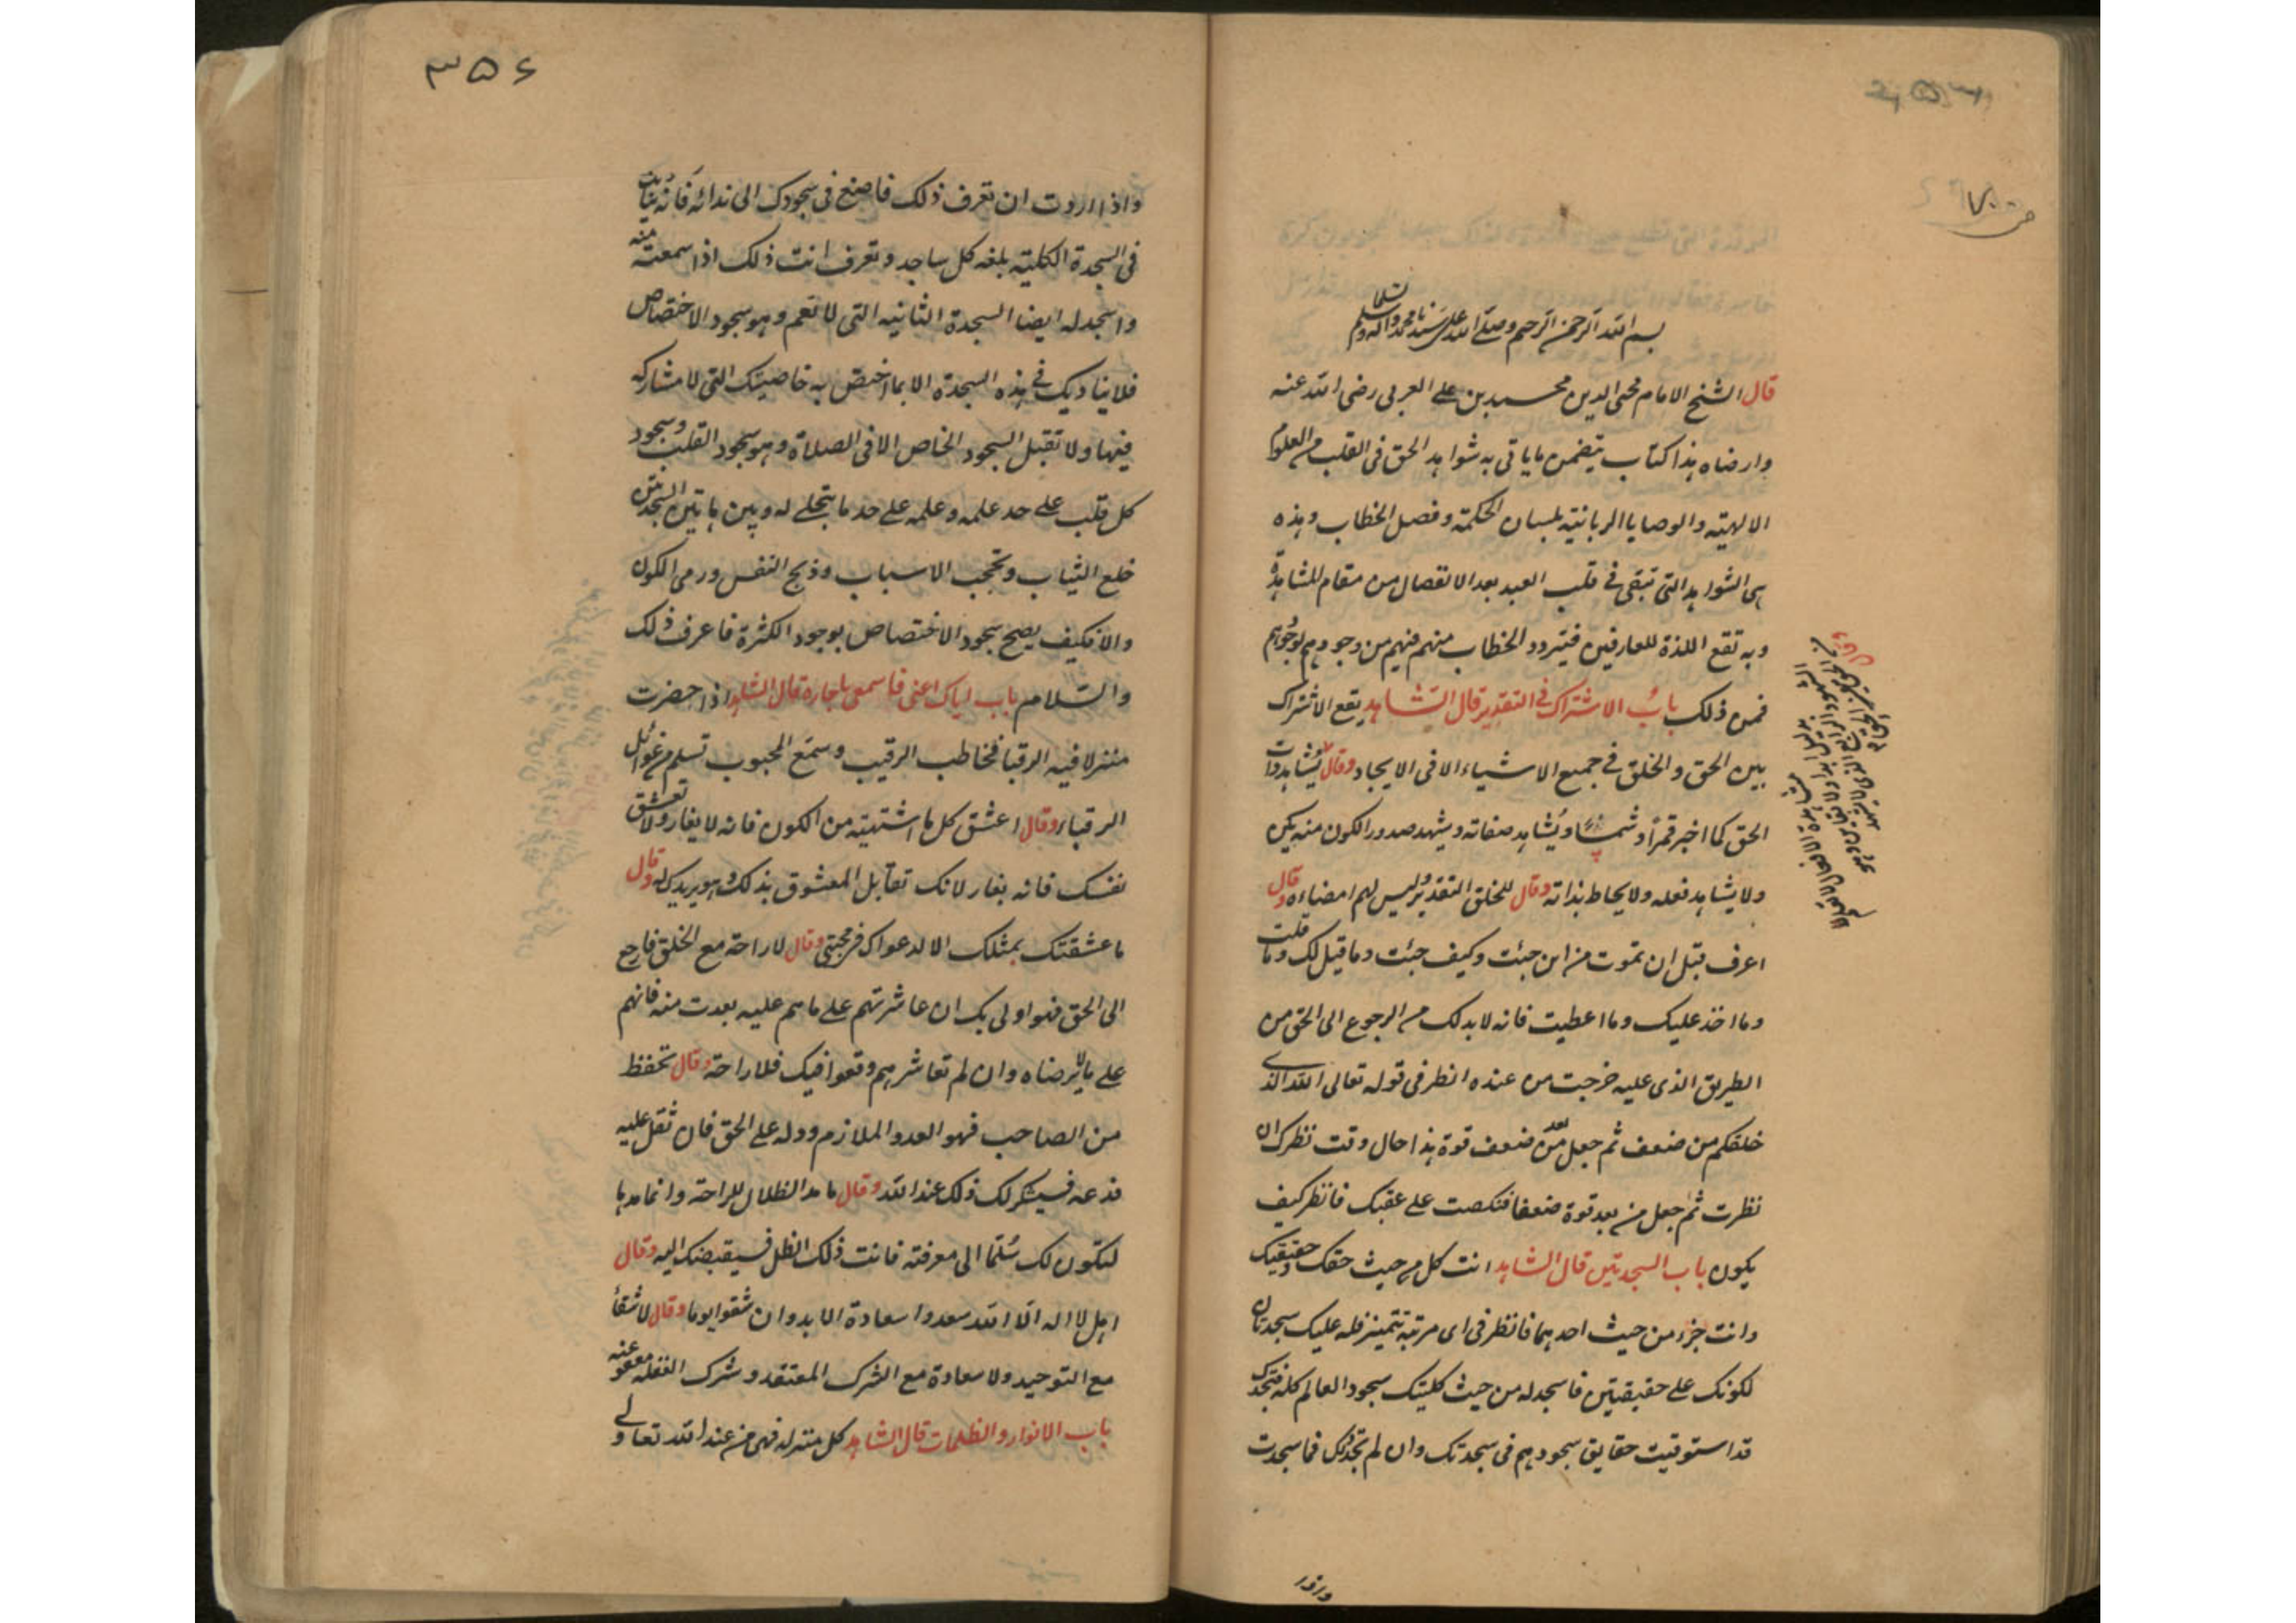 بسم الله الرحمن الرحيم وصلى الله على سيدنا محمد وآله وسلم تسليما
قال الشيخ الامام محيى الدين محمد بن على العربى رضى الله عنه
وارضاه هذا كتاب يتضمن ما ياتى به شواهد الحق فى القلب من العلوم
الالهيته والوصايا الربانيته بلسان الحكمة وفصل الخطاب وهذه
هى الشواهد التى تبقى فى قلب العبد بعد الانفصال من مقام المشاهدة
وبه تقع اللذة للعارفين فيتردد الخطاب منهم فيهم من وجودهم لوجودهم
فمن ذلك باب الاشتراك فى التقدير قال الشاهد يقع الاشتراك
بين الحق والخلق فى جميع الاشياء الا فى الايجاد وقال يشاهد ذات
الحق كما اخبر قمراً وشمساً ويشاهد صفاته ويشهد صدور الكون منه
ولا يشاهد فعله ولا يحاط بذاته وقال للخلق التقدير وليس لهم امضاءه وقال
اعرف قبل ان تموت من اين جئت وكيف جئت وما قيل لك وما قلت
وما اخذ عليك وما اعطيت فانه لا بد لك من الرجوع الى الحق من
الطريق الذى عليه خرجت من عنده انظر فى قوله تعالى الله الذى
خلقكم من ضعف ثم جعل من بعد ضعف قوة هذا حال وقت نظرك ان
نظرت ثم جعل من بعد قوة ضعفا فنكصت على عقبك فانظر كيف
يكون باب السجدتين قال الشاهد انت كل من حيث حقك وحقيقتك
وانت جزء من حيث احدهما فانظر فى اى مرتبة تتميز فله عليك سجدتان
لكونك على حقيقتين فاسجد له من حيث كليتك سجود العالم كله فتجدك
قد استوفيت حقايق سجودهم فى سجدتك وان لم تجد ذلك فما سجدت
٣٥٤
واذا اردت ان تعرف ذلك فاصغ فى سجودك الى ندائه فانه
فى السجدة الكليته بلغه كل ساجد وتعرف انت ذلك اذا سمعته منه
واسجد له ايضا السجدة الثانيه التى لا تعم وهو سجود الاختصاص
فلا يناديك فى هذه السجدة الا بما اختص به خاصيتك التى لا مشاركه
فيها ولا تقبل السجود الخاص الا فى الصلاة وهو سجود القلب وسجود
كل قلب على حد علمه وعلمه على حد ما يتجلى له وبين هاتين السجدتين
خلع الثياب وتحجب الاسباب وذبح النفس ورمى الكون
والا فكيف يصح سجود الاختصاص بوجود الكثرة فاعرف ذلك
والسلام باب اياك اعنى فاسمعى يا جاره قال الشاهد اذا حضرت
منزلا فيه الرقبا فخاطب الرقيب وسمّع المحبوب تسلم من غوائل
الرقباء وقال اعشق كل ما اشتهيته من الكون فانه لا يغار ولا تعشق
نفسك فانه يغار لانك تقابل المعشوق بذلك وهو يريدك له وقال
ما عشقتك بمثلك الا لدعواك فى محبتى وقال لا راحة مع الخلق فارجع
الى الحق فهو اولى بك ان عاشرتهم على ما هم عليه بعدت منه فانهم
على ما لا يرضاه وان لم تعاشرهم وقعوا فيك فلا راحة وقال تحفظ
من الصاحب فهو العدو الملازم ودله على الحق فان ثقل عليه
فدعه فسيشكر لك ذلك عند الله وقال ما مد الظلال للراحة وانما مدها
لتكون لك سُلّما الى معرفته فانت ذلك الظل فسيقبضك اليه وقال
اهل لا اله الا الله سعدوا سعادة الابد وان شقوا يوما وقال لا شقاء
مع التوحيد ولا سعادة مع الشرك المعتقد وشرك الغفله معفو عنه
باب الانوار والظلمات قال الشاهد كل منزله فهى من عند الله تعالى و